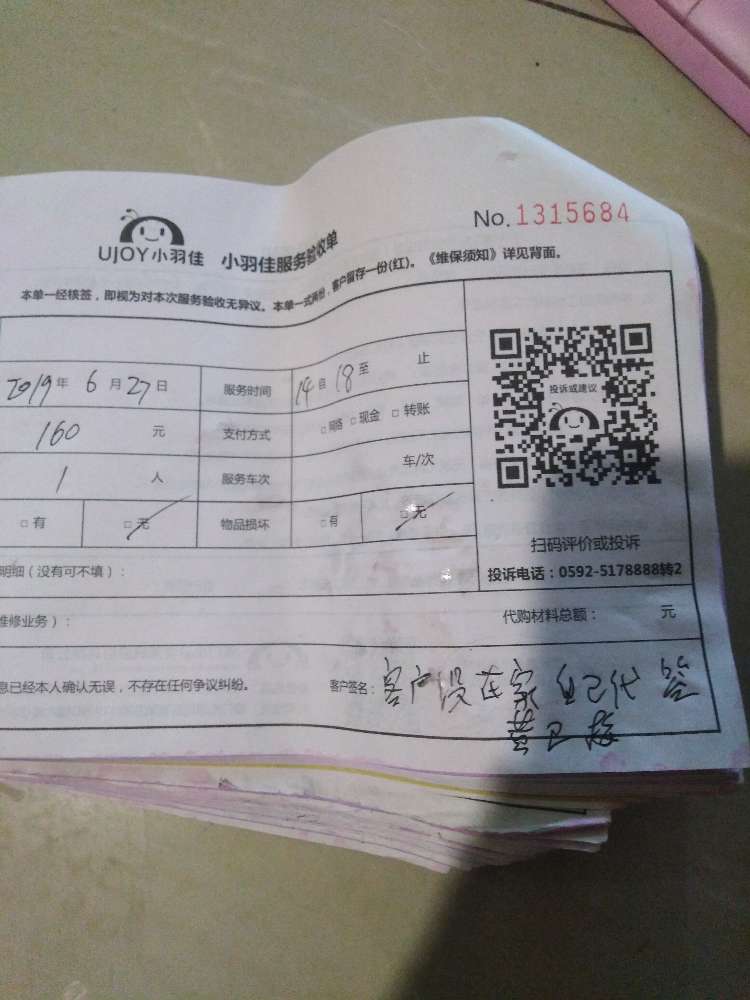 No.1315684
UJOY小羽佳 小羽佳服务验收单
本单一经核签，即视为对本次服务验收无异议。本单一式两份，客户留存一份(红)。《维保须知》详见背面。
2019年 6月27日 服务时间 14自 18至 止
160 元 支付方式 □网络 □现金 □转账
1 人 服务车次 车/次
□有 □无 物品损坏 □有 □无
投诉或建议
扫码评价或投诉
投诉电话：0592-5178888转2
明细（没有可不填）：
维修业务）： 代购材料总额： 元
息已经本人确认无误，不存在任何争议纠纷。 客户签名：客户没在家自己代签